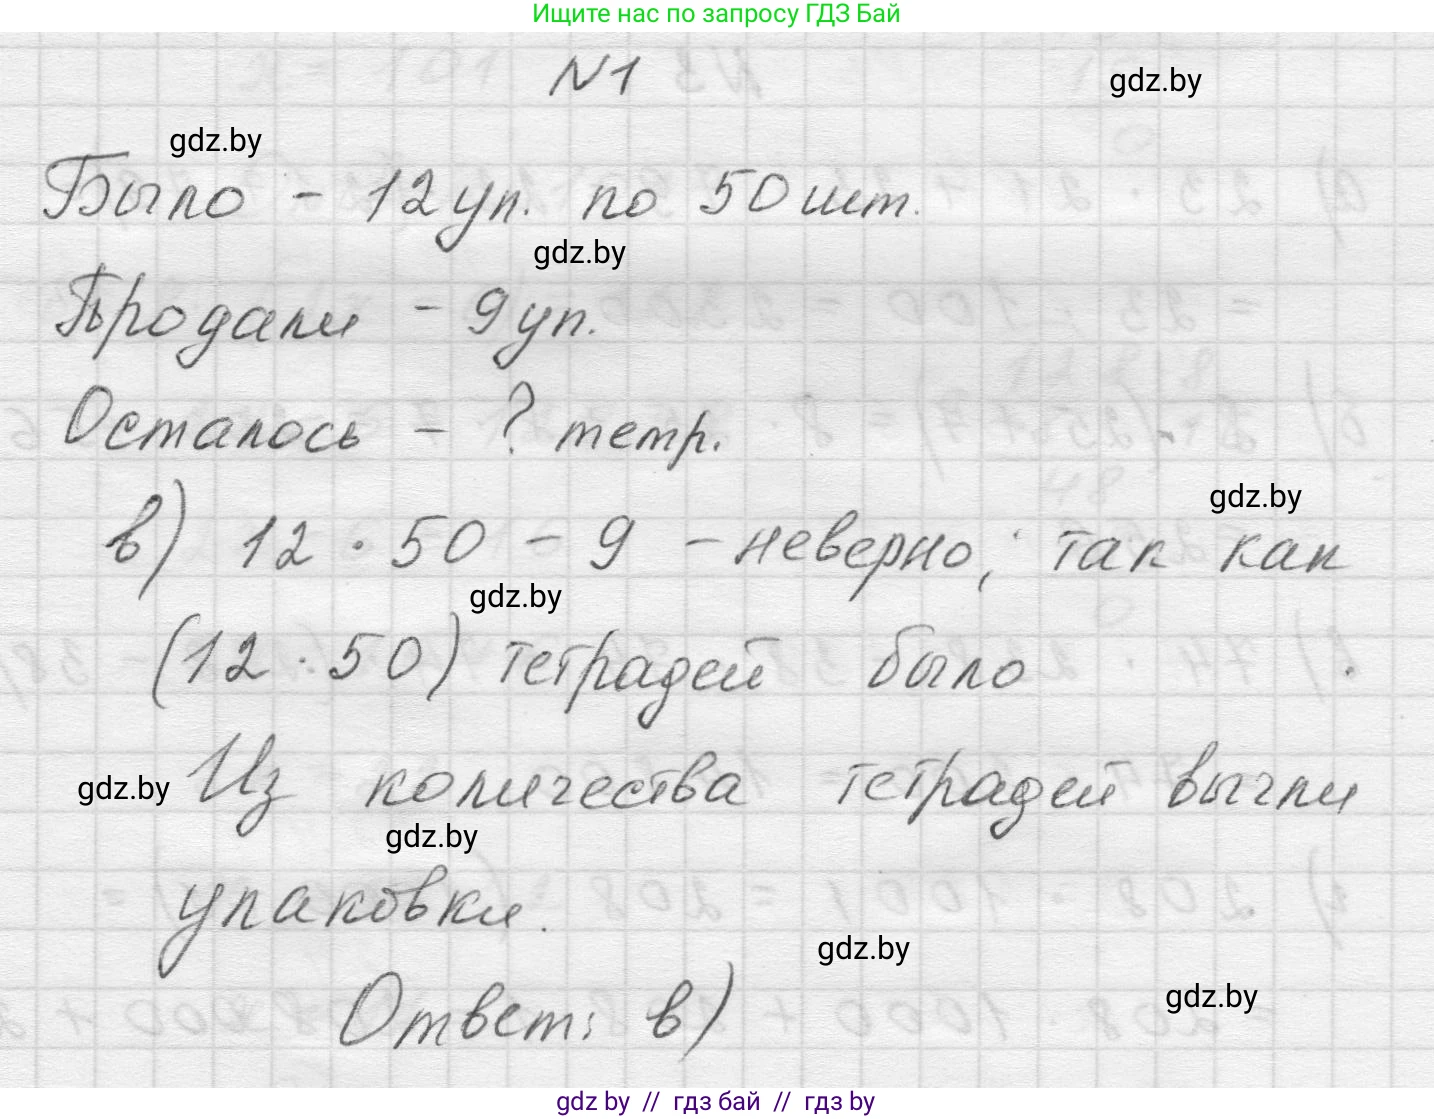 Ищите нас по запросу ГДЗ Бай
N1
gdz.by
gdz.by
Было - 12 уп. по 50 шт.
gdz.by
Продали - 9 уп.
Осталось - ? тетр.
gdz.by
в) 12 · 50 - 9 - неверно, так как
gdz.by
(12 · 50) тетрадей было
gdz.by Из количества тетрадей вычли
gdz.by
упаковки.
gdz.by
gdz.by
Ответ: в)
gdz.by // гдз бай // гдз by